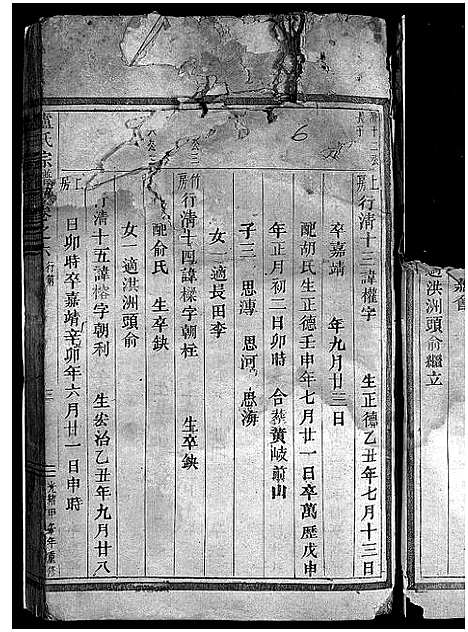 上房
行清十三諱權字
生正德乙丑年七月十三日
卒嘉靖 年九月廿三日
配胡氏生正德壬申年七月廿一日卒萬歷戊申
年正月初二日卯時 合葬黄岐前山
子三 思溥 思河 思海
女一適長田李
竹房
行清十四諱樑字朝柱
生卒缺
配俞氏 生卒缺
女一適洪洲頭俞
上房
行清十五諱榕字朝利
生宏治乙丑年九月廿八
日卯時卒嘉靖辛卯年六月廿一日申時
氏宗譜卷之六
行清
適洪洲頭俞繼立
6